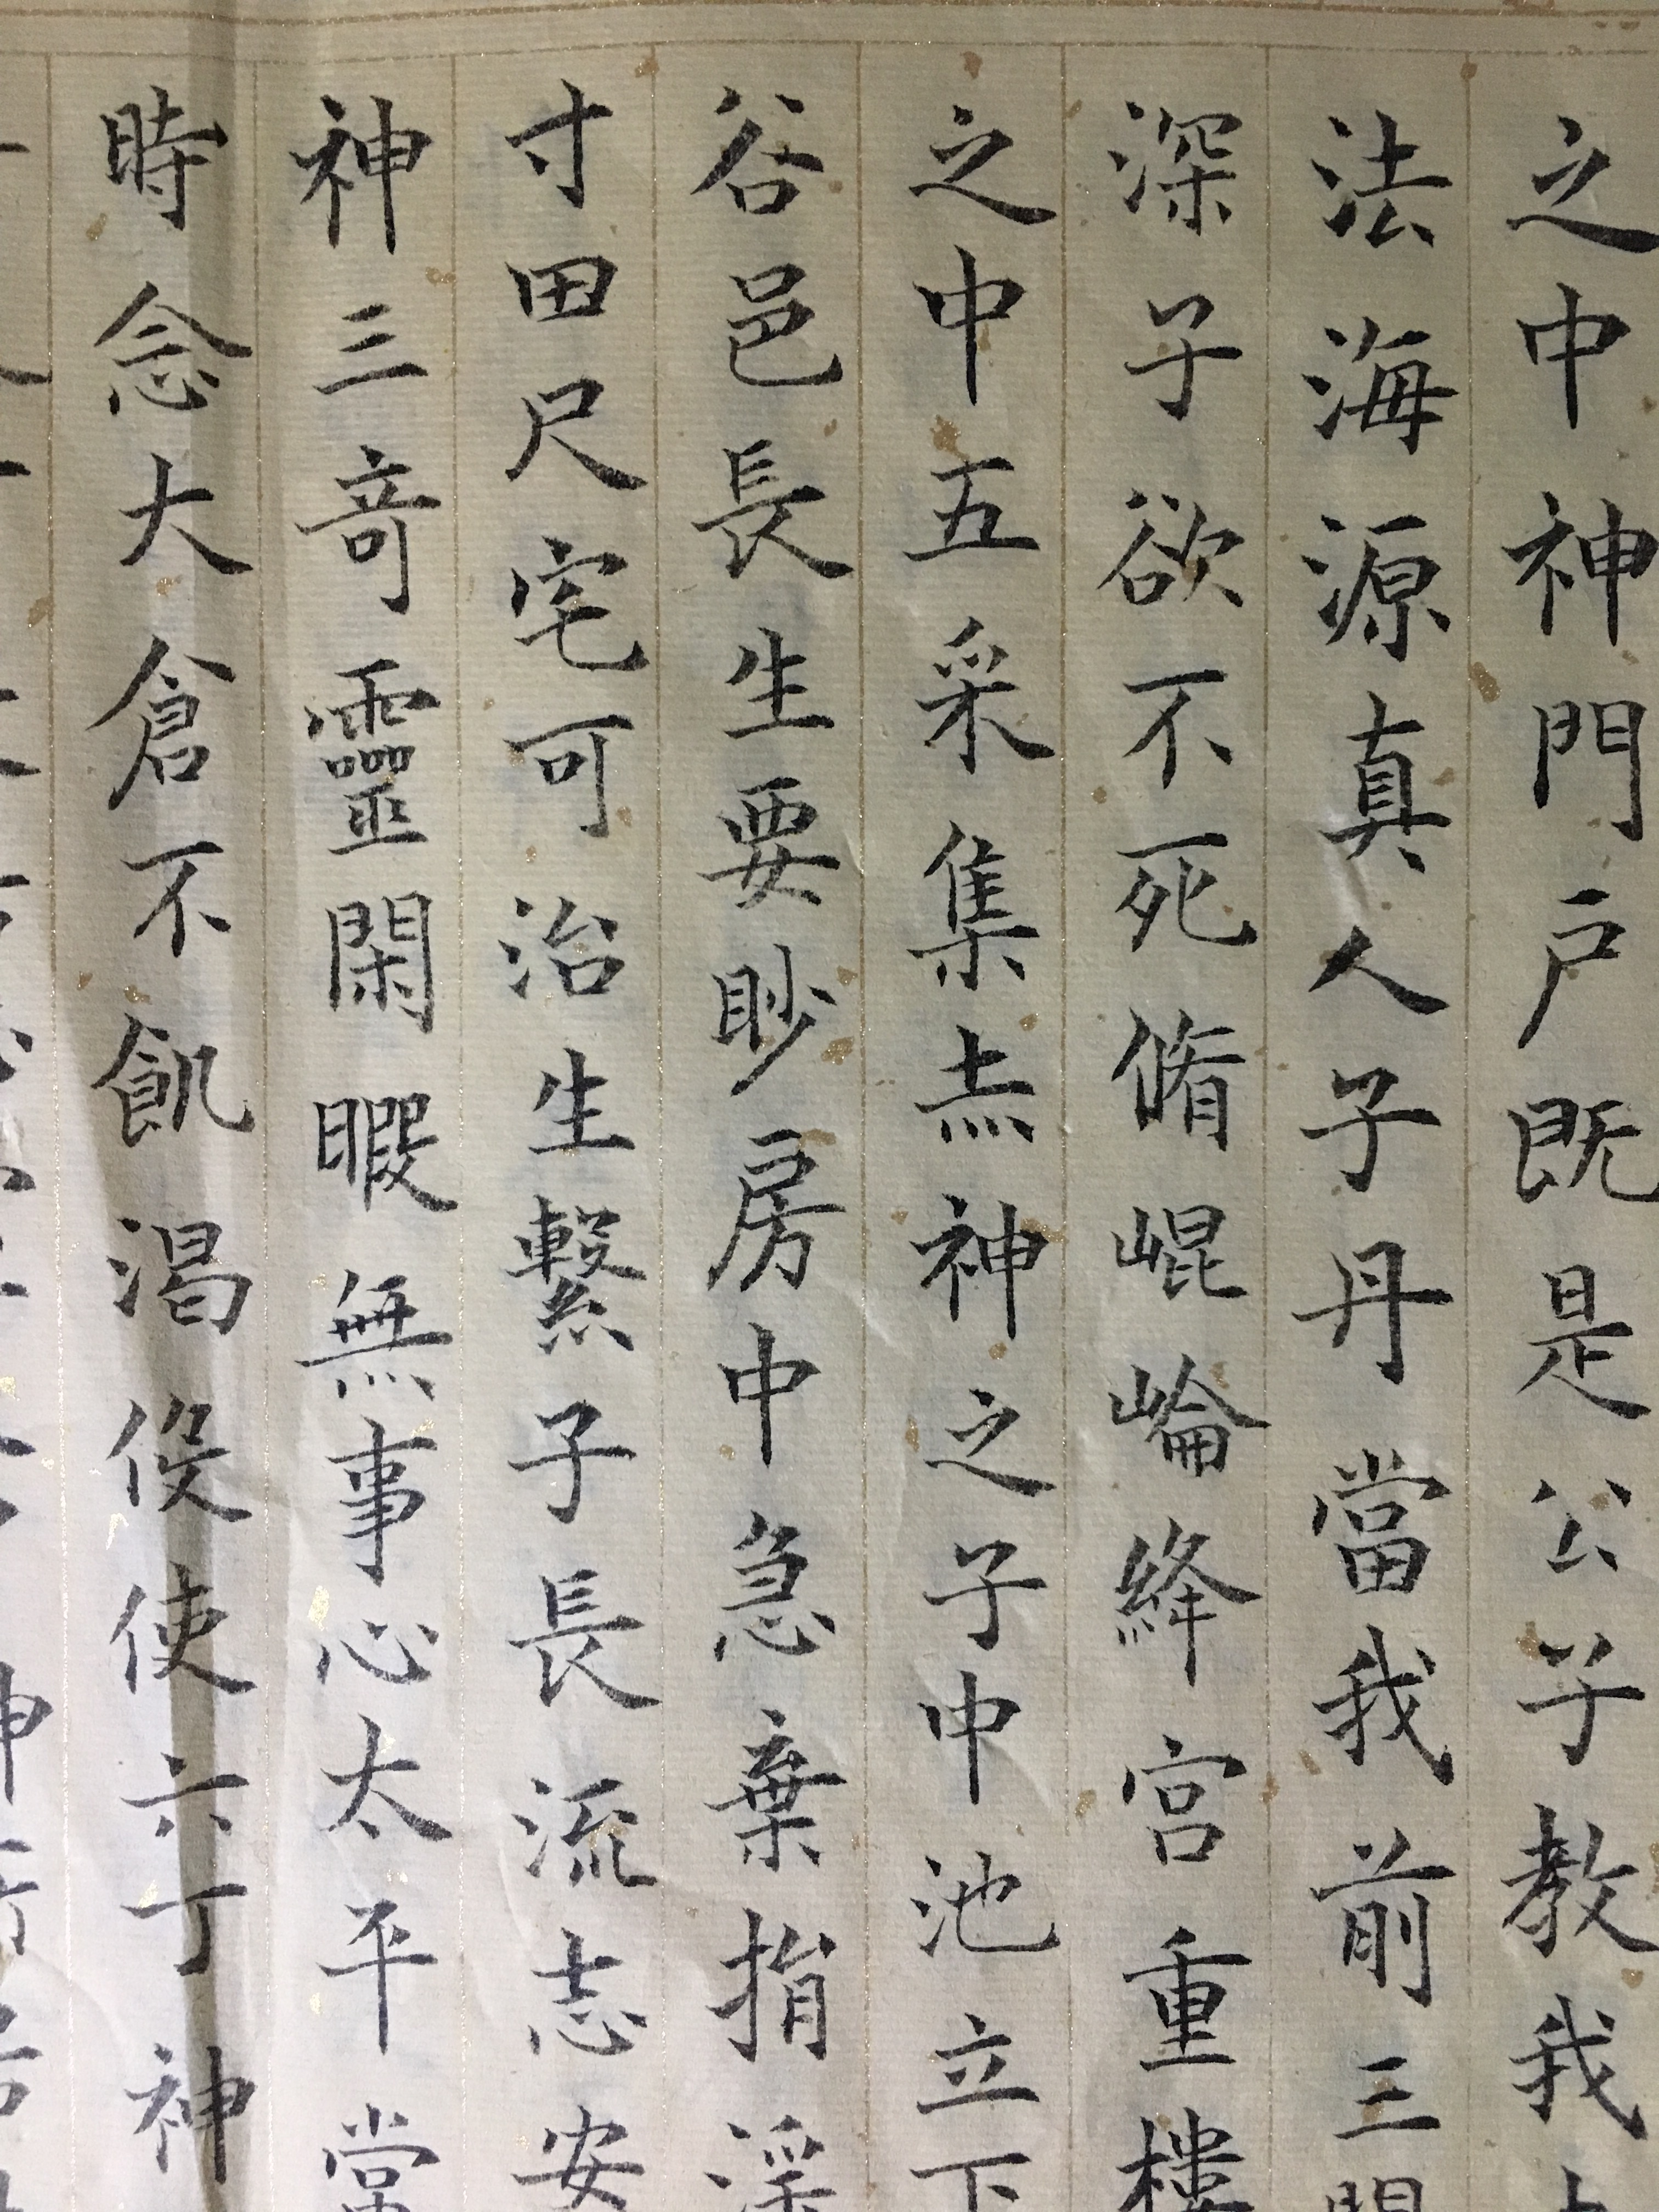 之中神門戶既是公子教我
法海源真人子丹當我前三
深子欲不死脩崐崘絳宮重樓
之中五采集灮神之子中池立下
谷邑長生要眇房中急棄捐淫
寸田尺宅可治生繫子長流志安
神三竒靈閑暇無事心太平當
時念大倉不飢渴伇使六丁神